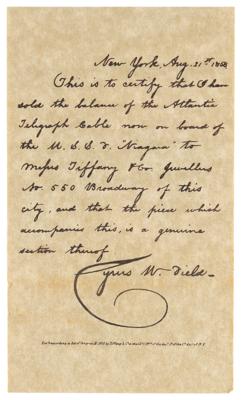 New York, Aug. 21st, 1858
This is to certify that I have
sold the balance of the Atlantic
Telegraph Cable now on board of
the U. S. S. F. "Niagara" to
Messrs Tiffany & Co. Jewellers
No 550 Broadway of this
city, and that the piece which
accompanies this, is a genuine
section thereof
Cyrus W. Field